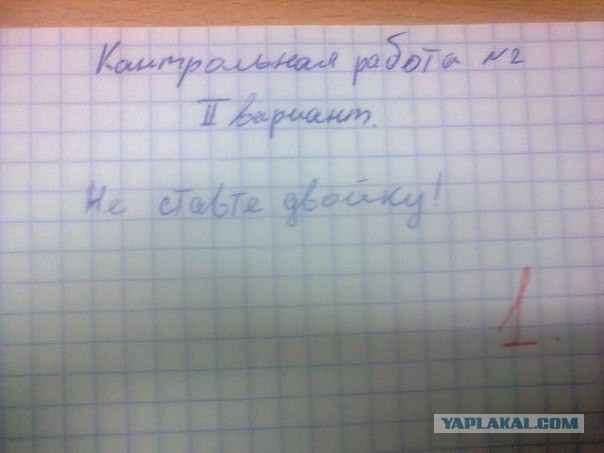 Кантрольная работа №2
II вариант.
Не ставте двойку!
1
YAPLAKAL.COM